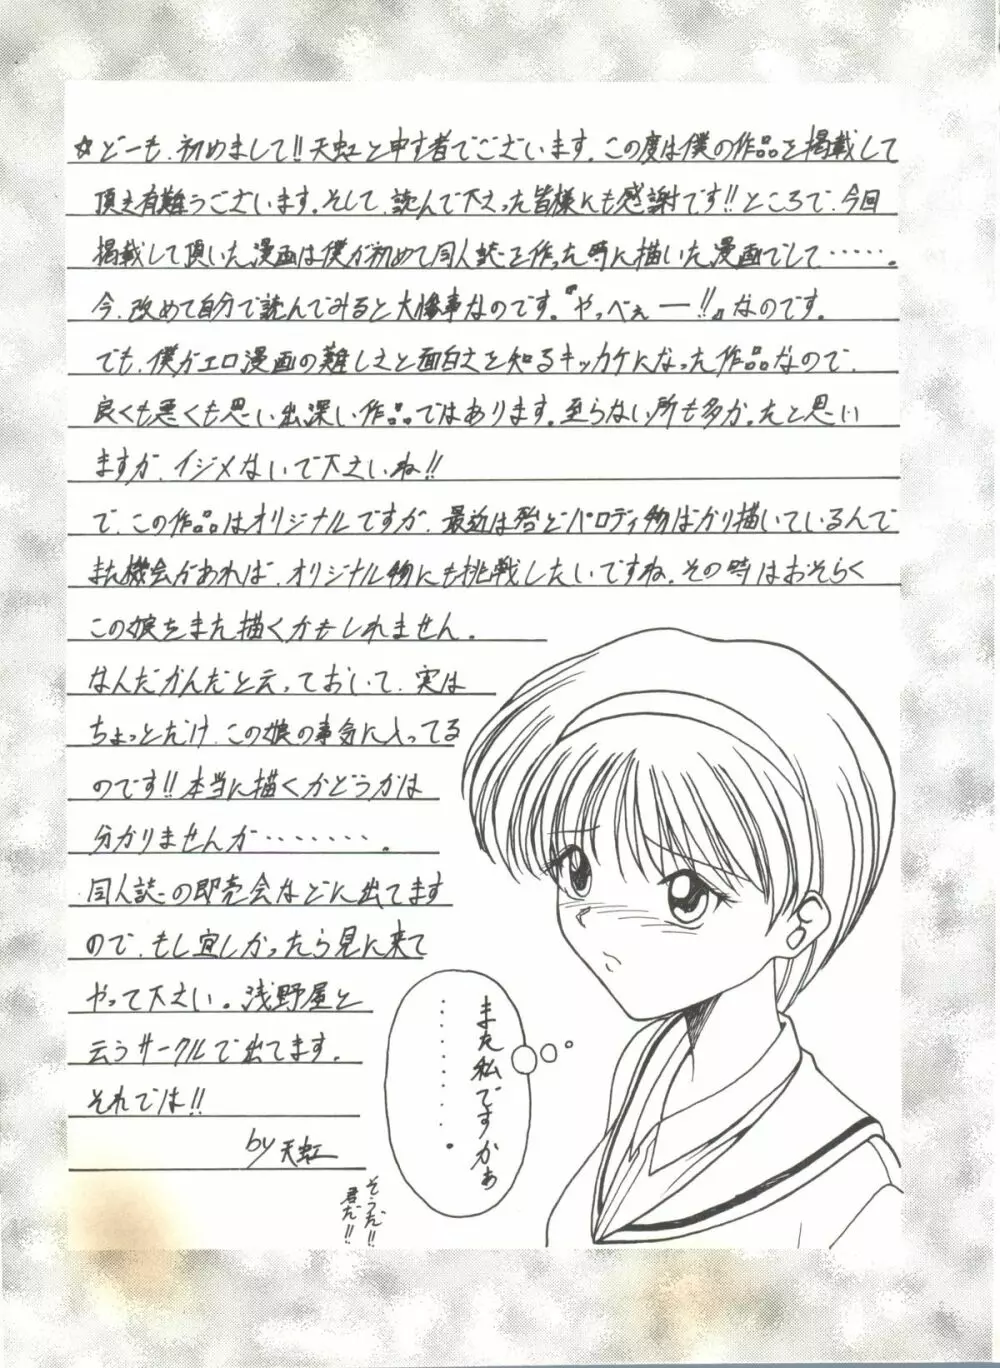 ☆どーも、初めまして!!天虹と申す者でございます。この度は僕の作品を掲載して
頂き有難うございます。そして、読んで下さった皆様にも感謝です!!ところで、今回
掲載して頂いた漫画は僕が初めて同人誌を作った時に描いた漫画でして……。
今、改めて自分で読んでみると大惨事なのです。『やっべぇー!!』なのです。
でも、僕がエロ漫画の難しさと面白さを知るキッカケになった作品なので、
良くも悪くも思い出深い作品ではあります。至らない所も多かったと思い
ますが、イジメないで下さいね!!
で、この作品はオリジナルですが、最近は殆どパロディ物ばかり描いているんで
また機会があれば、オリジナル物にも挑戦したいですね。その時はおそらく
この娘をまた描くかもしれません。
なんだかんだと云っておいて、実は
ちょっとだけ、この娘の事気に入ってる
のです!!本当に描くかどうかは
分かりませんが………。
同人誌の即売会などに出てます
ので、もし宜しかったら見に来て
やって下さい。浅野屋と
云うサークルで出てます。
それでは!!
by 天虹
また私ですかぁ
………。
そうだ!!
君だ!!